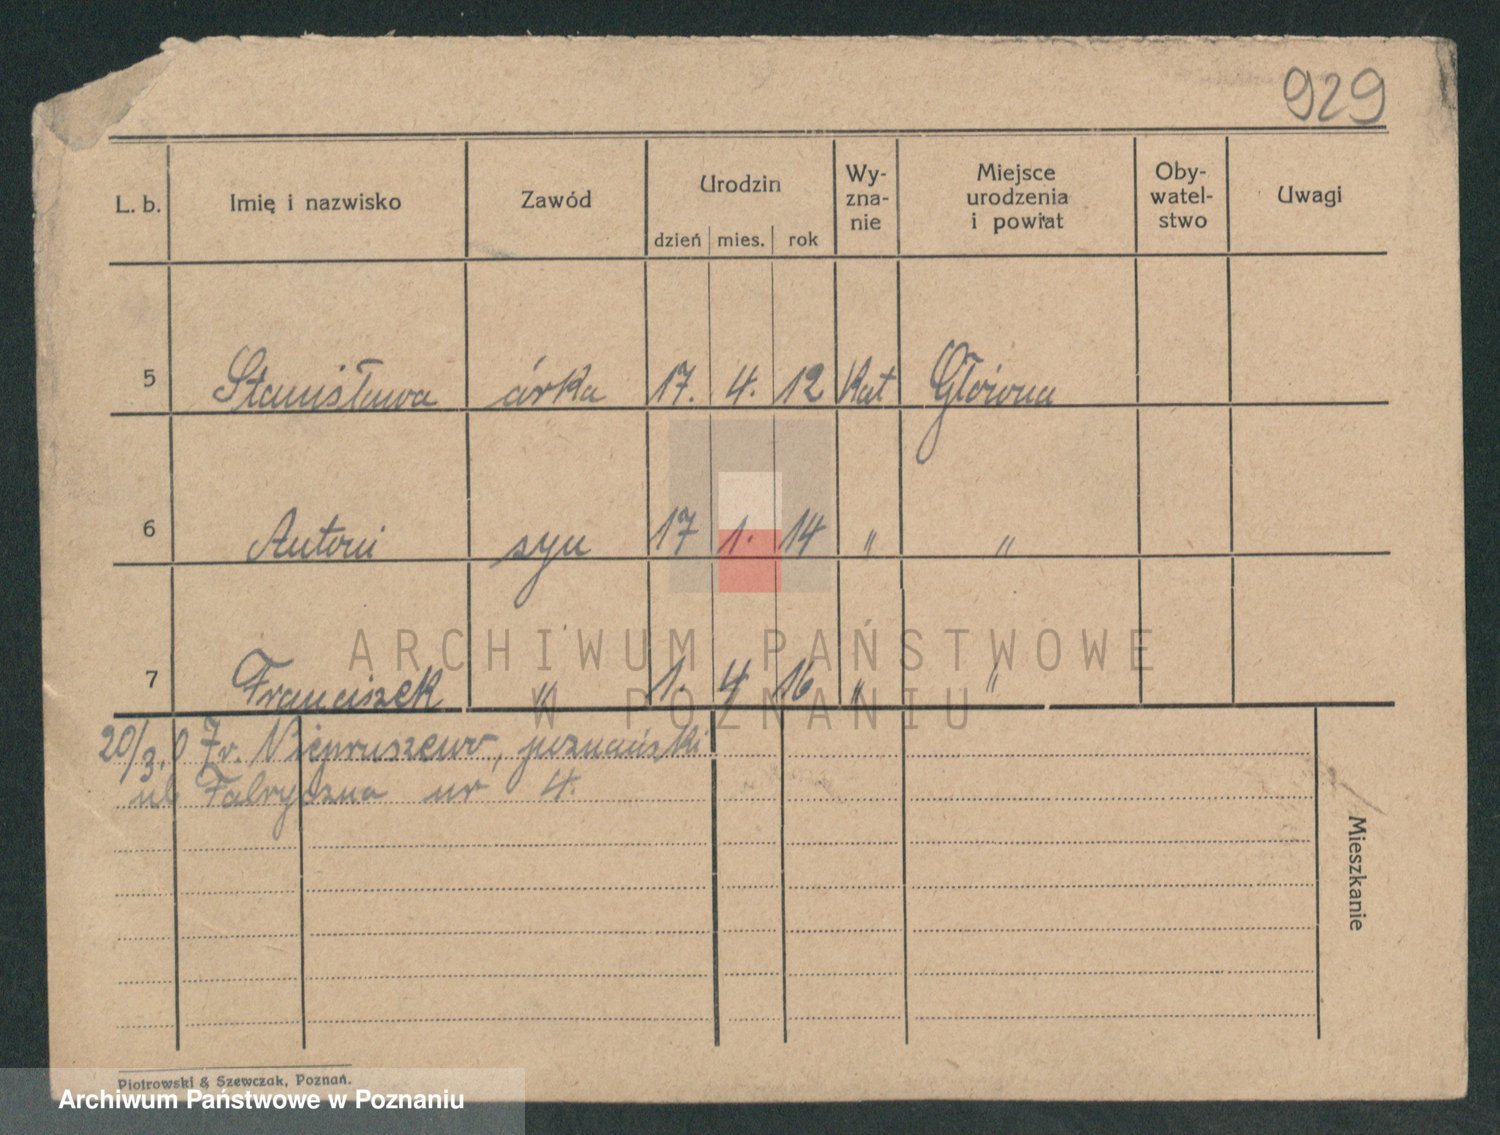 929
L. b. Imię i nazwisko Zawód Urodzin dzień mies. rok Wy-zna-nie Miejsce urodzenia i powiat Oby-watel-stwo Uwagi
5 Stanisława córka 17. 4. 12 Kat Główna
6 Antoni syn 17 1. 14 " "
7 Franciszek " 1. 4 16 " "
20/3.
poznański
ul Fabryczna nr 4.
Mieszkanie
Piotrowski & Szewczak, Poznań.
ARCHIWUM PAŃSTWOWE
W POZNANIU
Archiwum Państwowe w Poznaniu